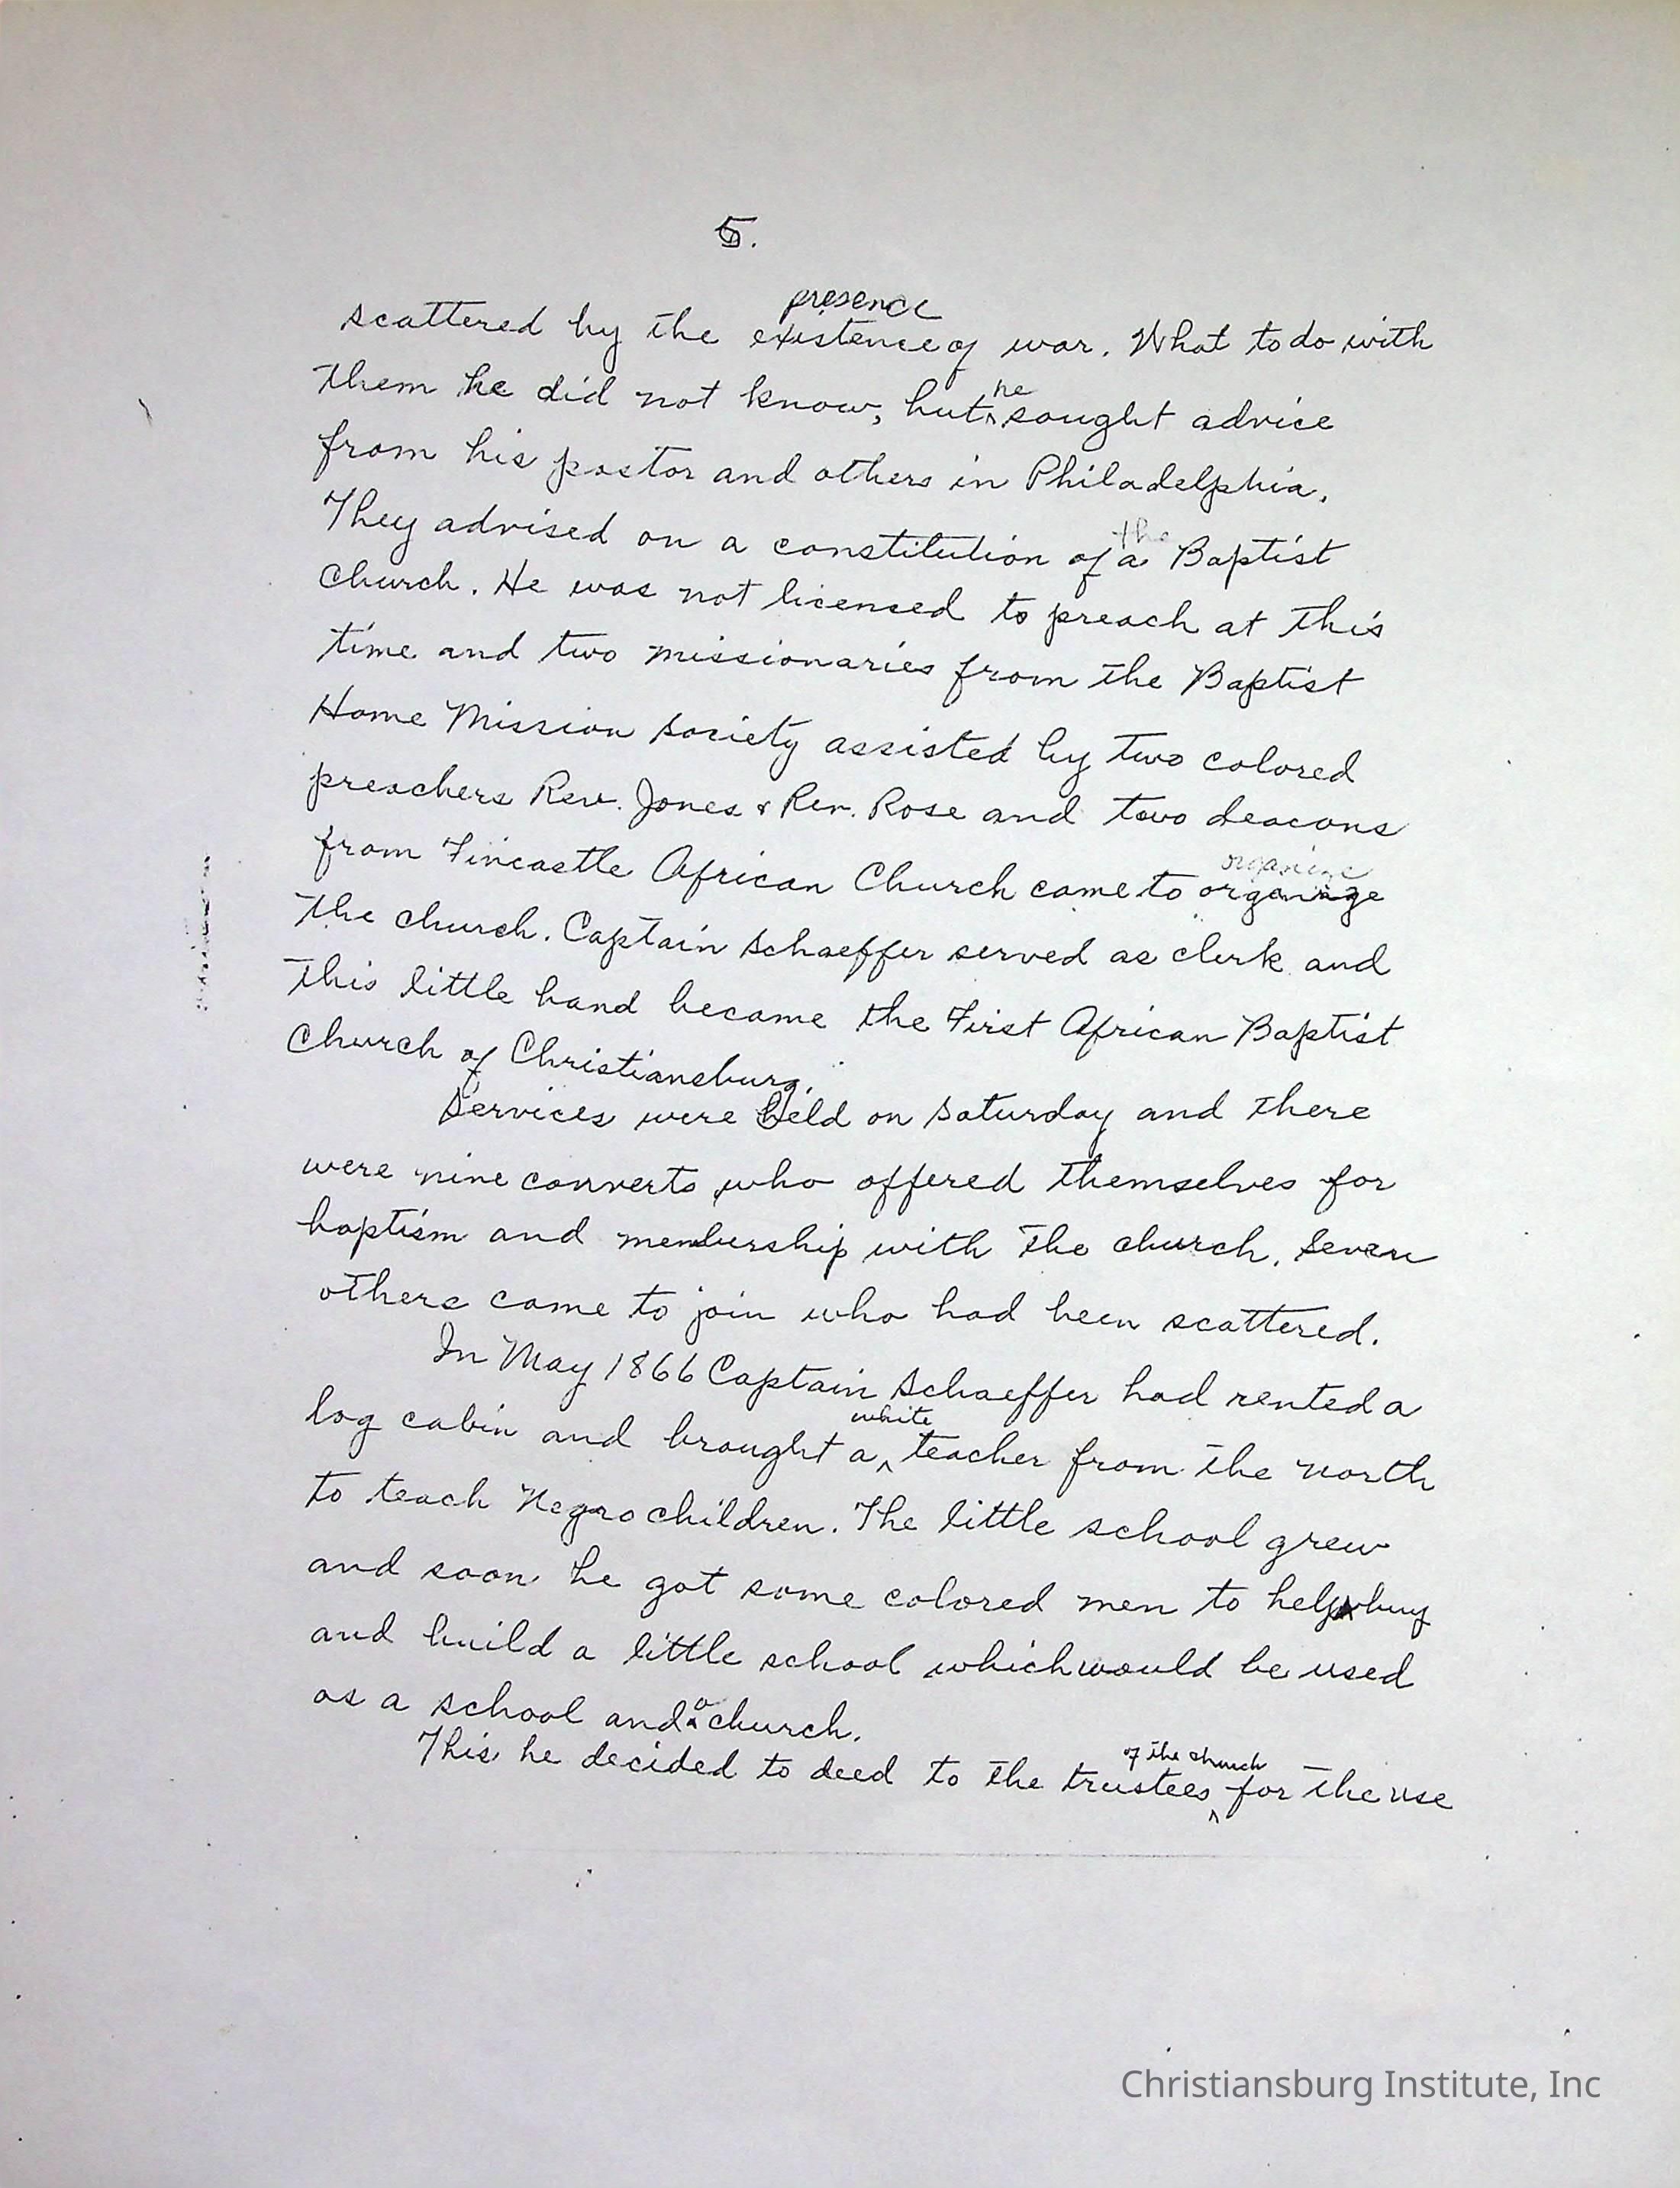 5.
presence
scattered by the existence of war. What to do with
he
them he did not know, but ^ sought advice
from his pastor and others in Philadelphia.
the
They advised on a constitution of a Baptist
Church. He was not licensed to preach at this
time and two missionaries from the Baptist
Home Mission Society assisted by two colored
preachers Rev. Jones & Rev. Rose and two deacons
organize
from Fincastle African Church came to organize
the church. Captain Schaeffer served as clerk and
this little band became the First African Baptist
Church of Christiansburg.
Services were held on Saturday and there
were nine converts who offered themselves for
baptism and membership with the church. Seven
others came to join who had been scattered.
In May 1866 Captain Schaeffer had rented a
white
log cabin and brought a ^ teacher from the North
to teach Negro children. The little school grew
and soon he got some colored men to help buy
and build a little school which would be used
a
as a school and ^ church.
of the church
This he decided to deed to the trustees ^ for the use
Christiansburg Institute, Inc